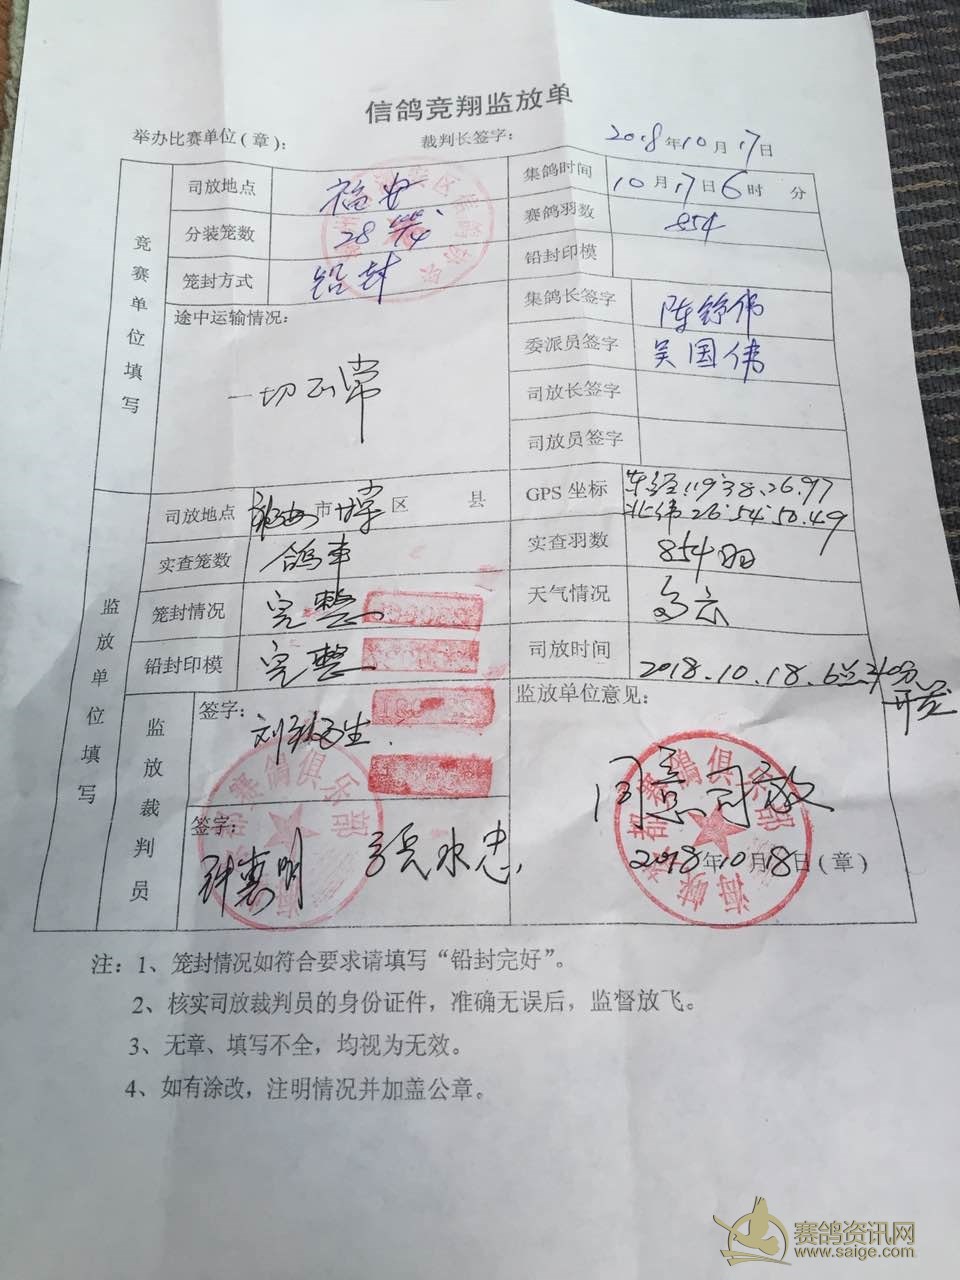 信鸽竞翔监放单
举办比赛单位(章): 裁判长签字: 2018年10月17日
竞赛单位填写
司放地点 福安 集鸽时间 10月17日6时 分
分装笼数 28笼 赛鸽羽数 854
笼封方式 铅封 铅封印模
途中运输情况: 集鸽长签字
一切正常
委派员签字 吴国伟
司放长签字
司放员签字
监放单位填写
司放地点 福安市 区 县 GPS坐标 东经119:38.26.97
北纬26:54:50.49
实查笼数 鸽车 实查羽数 854羽
笼封情况 完整 天气情况 多云
铅封印模 完整 司放时间 2018.10.18.6点
监放裁判员 签字: 监放单位意见:
同意司放
签字:
2018年10月18日(章)
赛鸽俱乐部
海峡 赛鸽俱乐部
注:1、笼封情况如符合要求请填写“铅封完好”。
2、核实司放裁判员的身份证件,准确无误后,监督放飞。
3、无章、填写不全,均视为无效。
4、如有涂改,注明情况并加盖公章。
赛鸽资讯网
www.saige.com